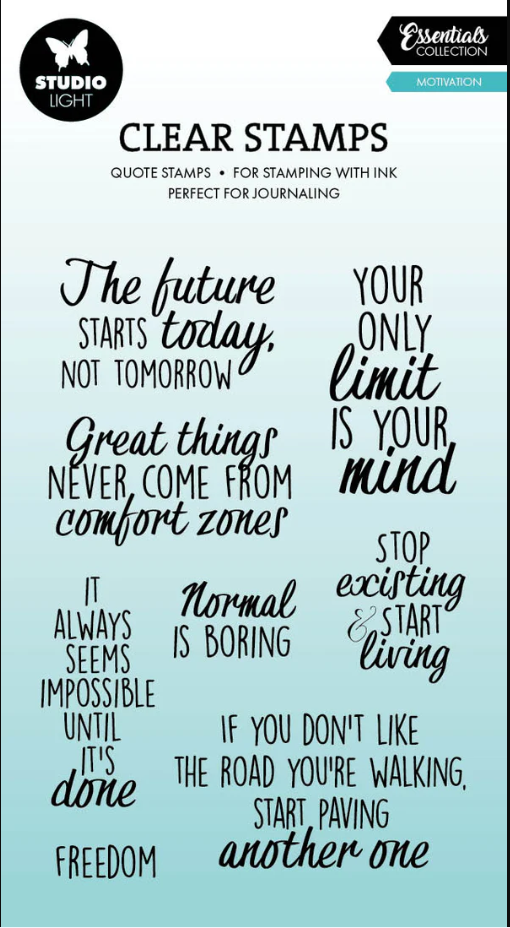 STUDIO
LIGHT
Essentials
COLLECTION
MOTIVATION
CLEAR STAMPS
QUOTE STAMPS • FOR STAMPING WITH INK
PERFECT FOR JOURNALING
The future
STARTS today,
NOT TOMORROW
YOUR
ONLY
limit
IS YOUR
mind
Great things
NEVER COME FROM
comfort zones
STOP
existing
& START
living
IT
ALWAYS
SEEMS
IMPOSSIBLE
UNTIL
IT'S
done
Normal
IS BORING
IF YOU DON'T LIKE
THE ROAD YOU'RE WALKING,
START PAVING
another one
FREEDOM